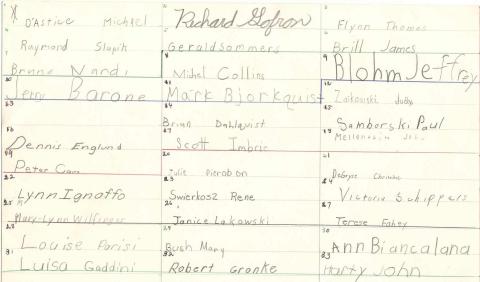 D'Astice Michael
Richard Gofron
Flynn Thomas
Raymond Slapik
Gerald Sommers
Brill James
Nardi
9
Blohm Jeffrey
Michel Collins
10
Jerry Barone
Mark Bjorkquist
Zaikowski Judy
13
14
Brian Dahlquist
15
Samborski Paul
16
Dennis Englund
17
Scott Imbrie
Peter Cam
20
Julie Pierobon
21
DeGryse Christine
Lynn Ignoffo
23
Swierkosz Rene
24
Victoria Schippers
25
Mary-Lynn Wilfinger
26
Janice Lakowski
27
Terese Fahey
28
Louise Parisi
29
Bush Mary
30
Ann Biancalana
31
Luisa Gaddini
32
Robert Granke
33
Harty John